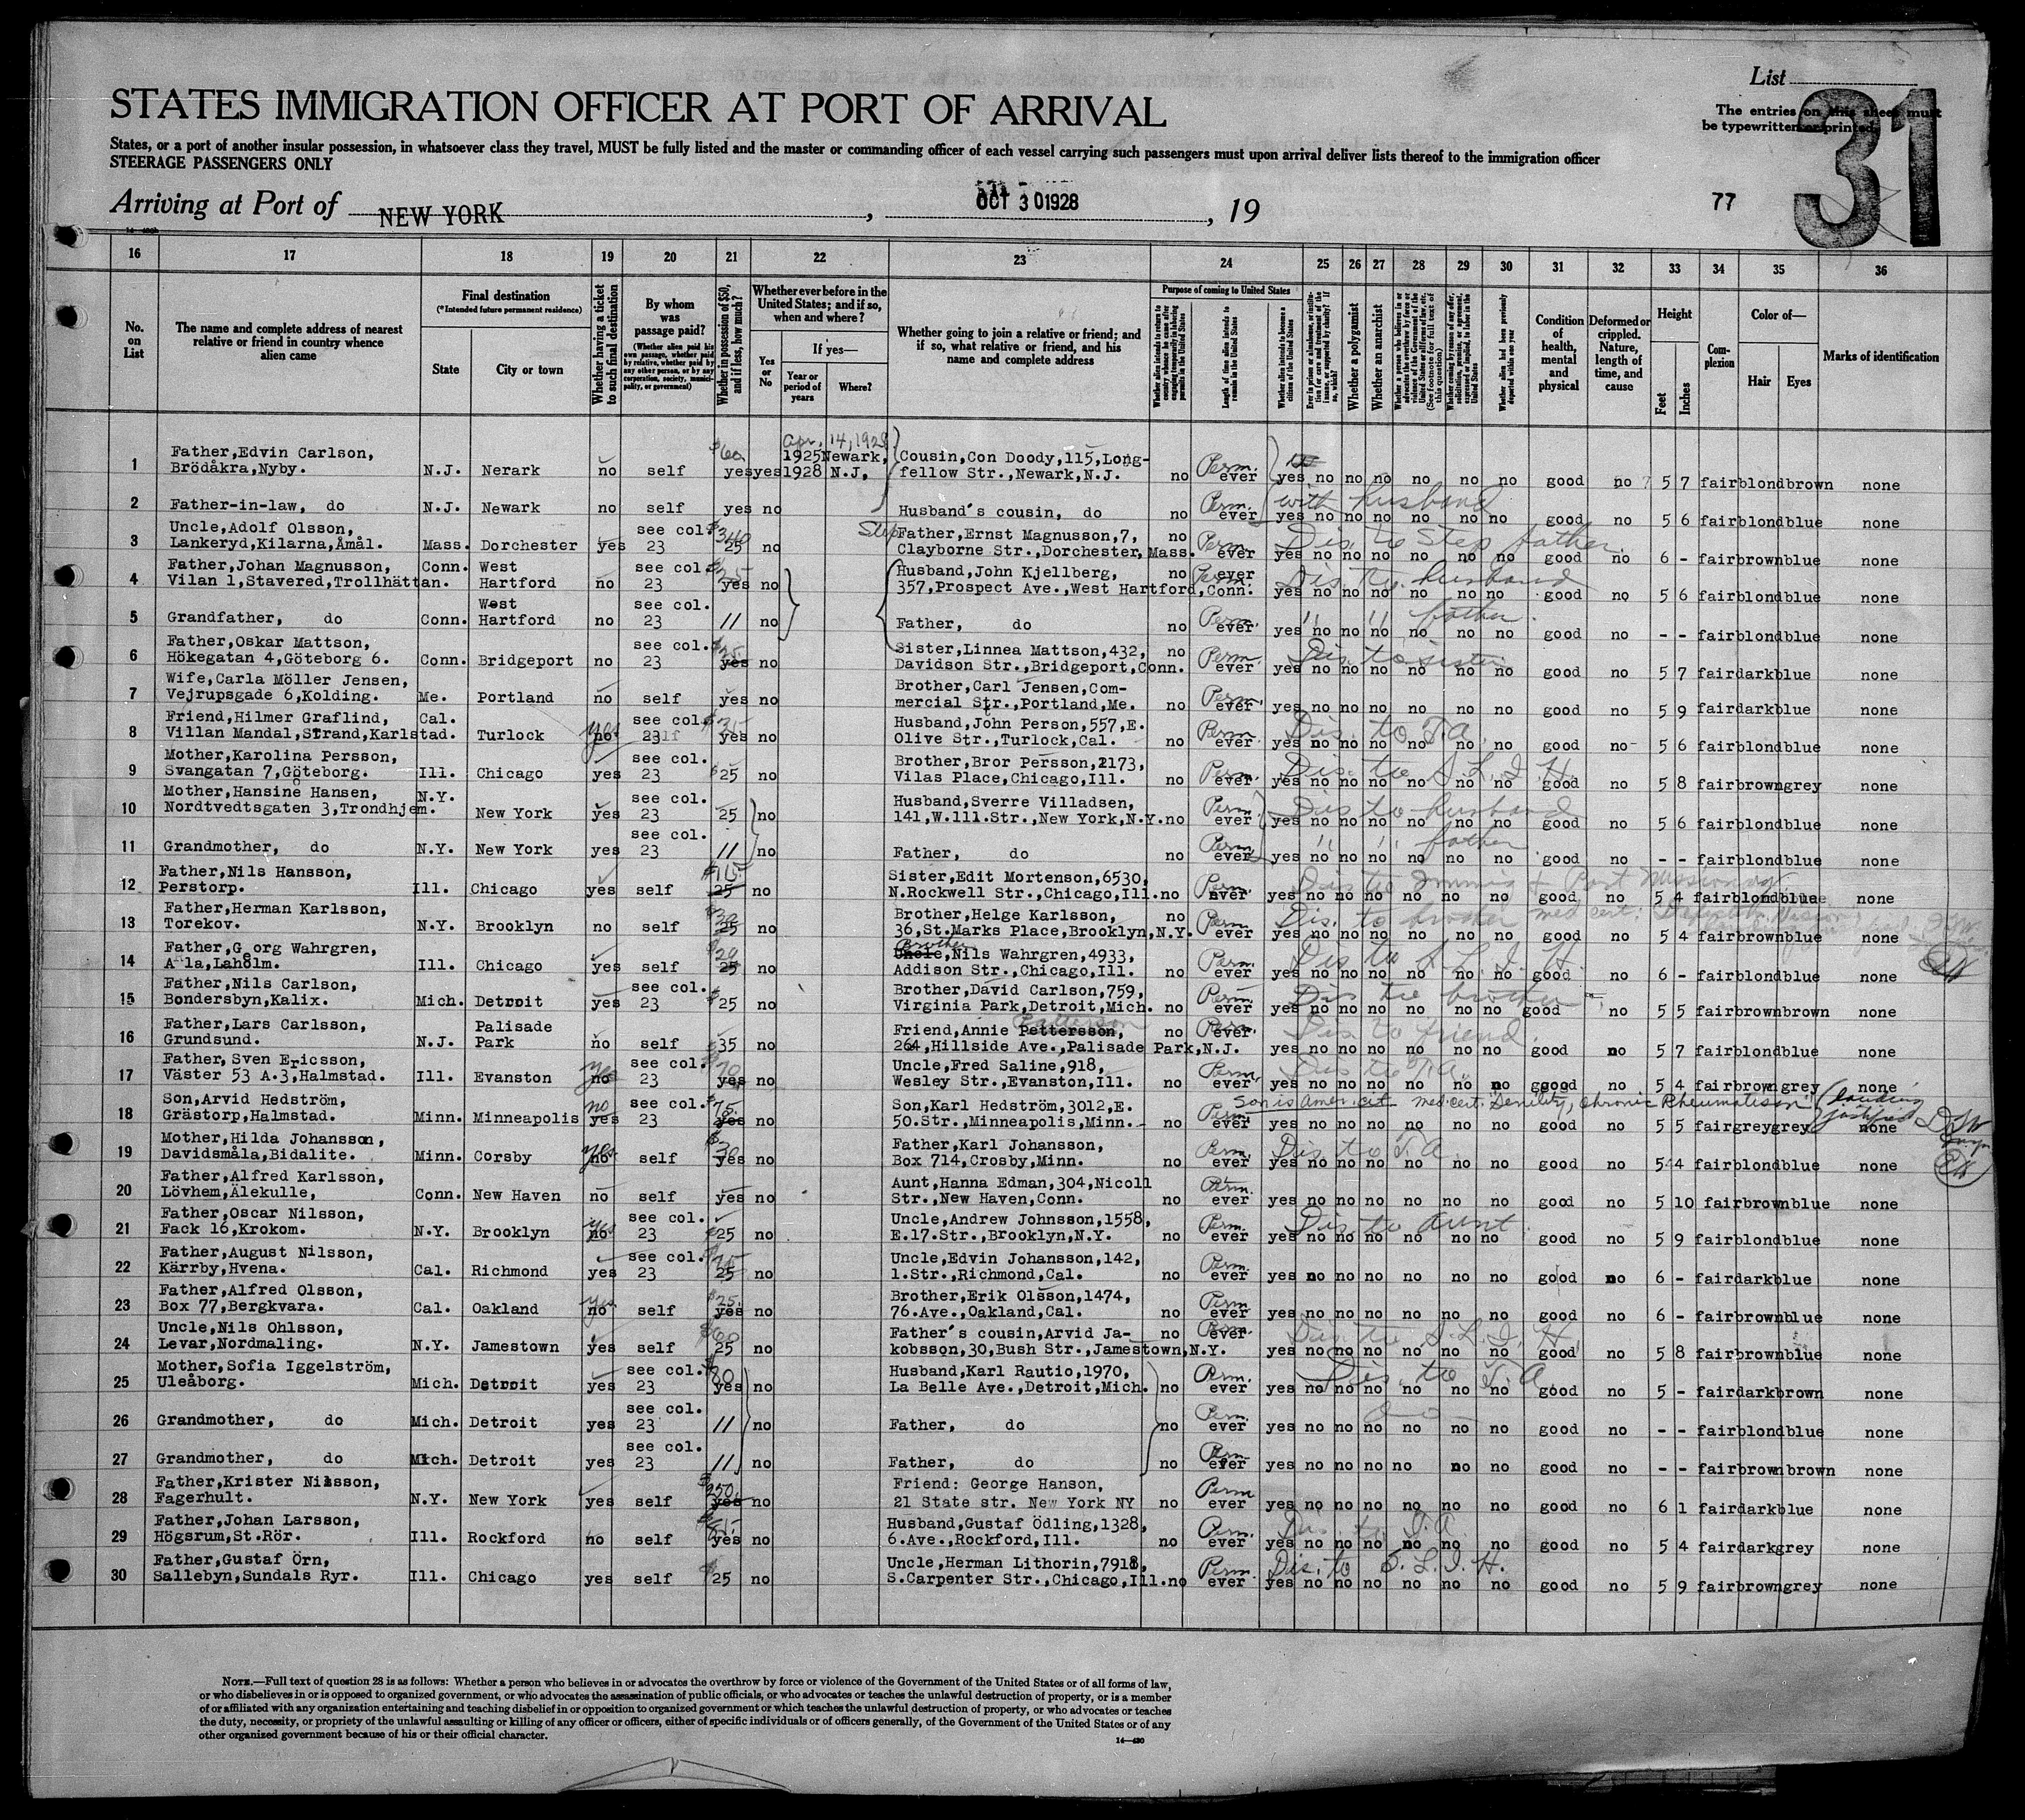 List
The entries on this sheet must
be typewritten or printed
31
STATES IMMIGRATION OFFICER AT PORT OF ARRIVAL
States, or a port of another insular possession, in whatsoever class they travel, MUST be fully listed and the master or commanding officer of each vessel carrying such passengers must upon arrival deliver lists thereof to the immigration officer
STEERAGE PASSENGERS ONLY
Arriving at Port of NEW YORK, OCT 3 0 1928, 19 77
16 17 18 19 20 21 22 23 24 25 26 27 28 29 30 31 32 33 34 35 36
No. on List
The name and complete address of nearest relative or friend in country whence alien came
Final destination
(*Intended future permanent residence)
State
City or town
Whether having a ticket to such final destination
By whom was passage paid?
(Whether alien paid his own passage, whether paid by relative, whether paid by any other person, or by any corporation, society, municipality, or government)
Whether in possession of $50, and if less, how much?
Whether ever before in the United States; and if so, when and where?
Yes or No
If yes—
Year or period of years
Where?
Whether going to join a relative or friend; and if so, what relative or friend, and his name and complete address
Purpose of coming to United States
Length of time alien intends to remain in the United States
Whether alien intends to become a citizen of the United States
Whether a polygamist
Whether an anarchist
(See footnote for full text of this question)
Condition of health, mental and physical
Deformed or crippled. Nature, length of time, and cause
Height
Feet
Inches
Complexion
Color of—
Hair
Eyes
Marks of identification
Apr. 14, 1928
Father,Edvin Carlson, $60 1925 Newark, Cousin,Con Doody,115,Long- Perm.
1 Brödåkra,Nyby. N.J. Nerark no self yes yes 1928 N.J. fellow Str.,Newark,N.J. no ever yes no no no no no no good no 5 7 fair blond brown none
Perm. with husband
2 Father-in-law, do N.J. Newark no self yes no Husband's cousin, do no ever yes no no no no no no good no 5 6 fair blond blue none
Uncle,Adolf Olsson, see col. $340 Step Father,Ernst Magnusson,7, no Perm. Dis. to Step father.
3 Lankeryd,Kilarna,Åmål. Mass. Dorchester yes 23 25 no Clayborne Str.,Dorchester,Mass. ever yes no no no no no no good no 6 - fair brown blue none
Father,Johan Magnusson, Conn. West see col. Husband,John Kjellberg, no ever Perm. Dis. to husband
4 Vilan 1,Stavered,Trollhättan. Hartford no 23 yes no 357,Prospect Ave.,West Hartford,Conn. yes no no no no no no good no 5 6 fair blond blue none
West see col. Perm. " " father.
5 Grandfather, do Conn. Hartford no 23 11 no Father, do no ever yes no no no no no no good no - - fair blond blue none
Father,Oskar Mattson, see col. $25 Sister,Linnea Mattson,432, no Perm. Dis. to sister
6 Hökegatan 4,Göteborg 6. Conn. Bridgeport no 23 yes no Davidson Str.,Bridgeport,Conn. ever yes no no no no no no good no 5 7 fair dark blue none
Wife,Carla Möller Jensen, Brother,Carl Jensen,Com- Perm.
7 Vejrupsgade 6,Kolding. Me. Portland no self yes no mercial Str.,Portland,Me. no ever yes no no no no no no good no 5 9 fair dark blue none
Friend,Hilmer Graflind, Cal. yes see col. $35 Husband,John Person,557,E. Perm Dis. to T.A.
8 Villan Mandal,Strand,Karlstad. Turlock no 23 yes no Olive Str.,Turlock,Cal. no ever yes no no no no no no good no 5 6 fair blond blue none
Mother,Karolina Persson, see col. Brother,Bror Persson,2173, Perm. Dis. to S.L.I.H.
9 Svangatan 7,Göteborg. Ill. Chicago yes 23 $25 no Vilas Place,Chicago,Ill. no ever yes no no no no no no good no 5 8 fair brown grey none
Mother,Hansine Hansen, N.Y. see col. Husband,Sverre Villadsen, Perm Dis to husband
10 Nordtvedtsgaten 3,Trondhjem. New York yes 23 25 no 141,W.111.Str.,New York,N.Y. no ever yes no no no no no no good no 5 6 fair blond blue none
see col. Perm " " father
11 Grandmother, do N.Y. New York yes 23 11 no Father, do no ever yes no no no no no no good no - - fair blond blue none
Father,Nils Hansson, $115 Sister,Edit Mortenson,6530, Perm. Dis to Immig + Port Missionary
12 Perstorp. Ill. Chicago yes self 25 no N.Rockwell Str.,Chicago,Ill. no ever yes no no no no no no good no 5 4 fair blond blue none
Father,Herman Karlsson, $30 Brother,Helge Karlsson, no Perm Dis. to brother med cert: Defective Vision
13 Torekov. N.Y. Brooklyn no self 25 no 36,St.Marks Place,Brooklyn,N.Y. ever yes no no no no no no good no 5 4 fair brown blue none
Father,Georg Wahrgren, $20 Brother Uncle,Nils Wahrgren,4933, Perm. Dis to S.L.I.H.
14 Ala,Laholm. Ill. Chicago yes self 25 no Addison Str.,Chicago,Ill. no ever yes no no no no no no good no 6 - fair blond blue none
Father,Nils Carlson, see col. Brother,David Carlson,759, Perm. Dis to brother
15 Bondersbyn,Kalix. Mich. Detroit yes 23 $25 no Virginia Park,Detroit,Mich. no ever yes no no no no no no good no 5 5 fair brown brown none
Father,Lars Carlsson, Palisade Friend,Annie Pettersson, Patterson no Perm. Dis to friend.
16 Grundsund. N.J. Park no self $35 no 264,Hillside Ave.,Palisade Park,N.J. ever yes no no no no no no good no 5 7 fair blond blue none
Father,Sven Ericsson, yes see col. $70 Uncle,Fred Saline,918, Perm. Dis to T.A.
17 Väster 53 A.3,Halmstad. Ill. Evanston no 23 yes no Wesley Str.,Evanston,Ill. no ever yes no no no no no no good no 5 4 fair brown grey none
Son,Arvid Hedström, no see col. $75. Son,Karl Hedström,3012,E. Perm. Son is Amer. cit. med. cert. Senility, Chronic Rheumatism landing justified
18 Grästorp,Halmstad. Minn. Minneapolis yes 23 yes no 50.Str.,Minneapolis,Minn. no ever yes no no no no no no good no 5 5 fair grey grey none
Mother,Hilda Johansson, yes $30 Father,Karl Johansson, Perm. Dis to T.A.
19 Davidsmåla,Bidalite. Minn. Corsby no self yes no Box 714,Crosby,Minn. no ever yes no no no no no no good no 5 4 fair blond blue none
Father,Alfred Karlsson, Aunt,Hanna Edman,304,Nicoll Perm.
20 Lövhem,Älekulle, Conn. New Haven no self yes no Str.,New Haven,Conn. no ever yes no no no no no no good no 5 10 fair brown blue none
Father,Oscar Nilsson, yes see col. Uncle,Andrew Johnsson,1558, Perm. Dis. to Aunt.
21 Fack 16,Krokom. N.Y. Brooklyn no 23 $25 no E.17.Str.,Brooklyn,N.Y. no ever yes no no no no no no good no 5 9 fair blond blue none
Father,August Nilsson, see col. Uncle,Edvin Johansson,142, Perm.
22 Kärrby,Hvena. Cal. Richmond yes 23 25 no 1.Str.,Richmond,Cal. no ever yes no no no no no no good no 6 - fair dark blue none
Father,Alfred Olsson, yes $25. Brother,Erik Olsson,1474, Perm
23 Box 77,Bergkvara. Cal. Oakland no self yes no 76.Ave.,Oakland,Cal. no ever yes no no no no no no good no 6 - fair brown blue none
Uncle,Nils Ohlsson, $60 Father's cousin,Arvid Ja- no Perm. ever Dis. to S.L.I.H.
24 Levar,Nordmaling. N.Y. Jamestown yes self 25 no kobsson,30,Bush Str.,Jamestown,N.Y. yes no no no no no no good no 5 8 fair brown blue none
Mother,Sofia Iggelström, see col. Husband,Karl Rautio,1970, Perm. Dis. to T.A.
25 Uleåborg. Mich. Detroit yes 23 yes no La Belle Ave.,Detroit,Mich. no ever yes no no no no no no good no 5 - fair dark brown none
see col. Perm.
26 Grandmother, do Mich. Detroit yes 23 11 no Father, do no ever yes no no no no no no good no - - fair blond blue none
see col. Perm.
27 Grandmother, do Mich. Detroit yes 23 11 no Father, do no ever yes no no no no no no good no - - fair brown brown none
Father,Krister Nilsson, $250. Friend: George Hanson, Perm
28 Fagerhult. N.Y. New York yes self yes no 21 State str. New York NY no ever yes no no no no no no good no 6 1 fair dark blue none
Father,Johan Larsson, Husband,Gustaf Ödling,1328, Perm. Dis. to T.A.
29 Högsrum,St.Rör. Ill. Rockford no self yes no 6.Ave.,Rockford,Ill. no ever yes no no no no no no good no 5 4 fair dark grey none
Father,Gustaf Örn, Uncle,Herman Lithorin,7918, Perm. Dis. to S.L.I.H.
30 Sallebyn,Sundals Ryr. Ill. Chicago yes self $25 no S.Carpenter Str.,Chicago,Ill. no ever yes no no no no no no good no 5 9 fair brown grey none
NOTE.—Full text of question 28 is as follows: Whether a person who believes in or advocates the overthrow by force or violence of the Government of the United States or of all forms of law,
or who disbelieves in or is opposed to organized government, or who advocates the assassination of public officials, or who advocates or teaches the unlawful destruction of property, or is a member
of or affiliated with any organization entertaining and teaching disbelief in or opposition to organized government or which teaches the unlawful destruction of property, or who advocates or teaches
the duty, necessity, or propriety of the unlawful assaulting or killing of any officer or officers, either of specific individuals or of officers generally, of the Government of the United States or of any
other organized government because of his or their official character.
14—430